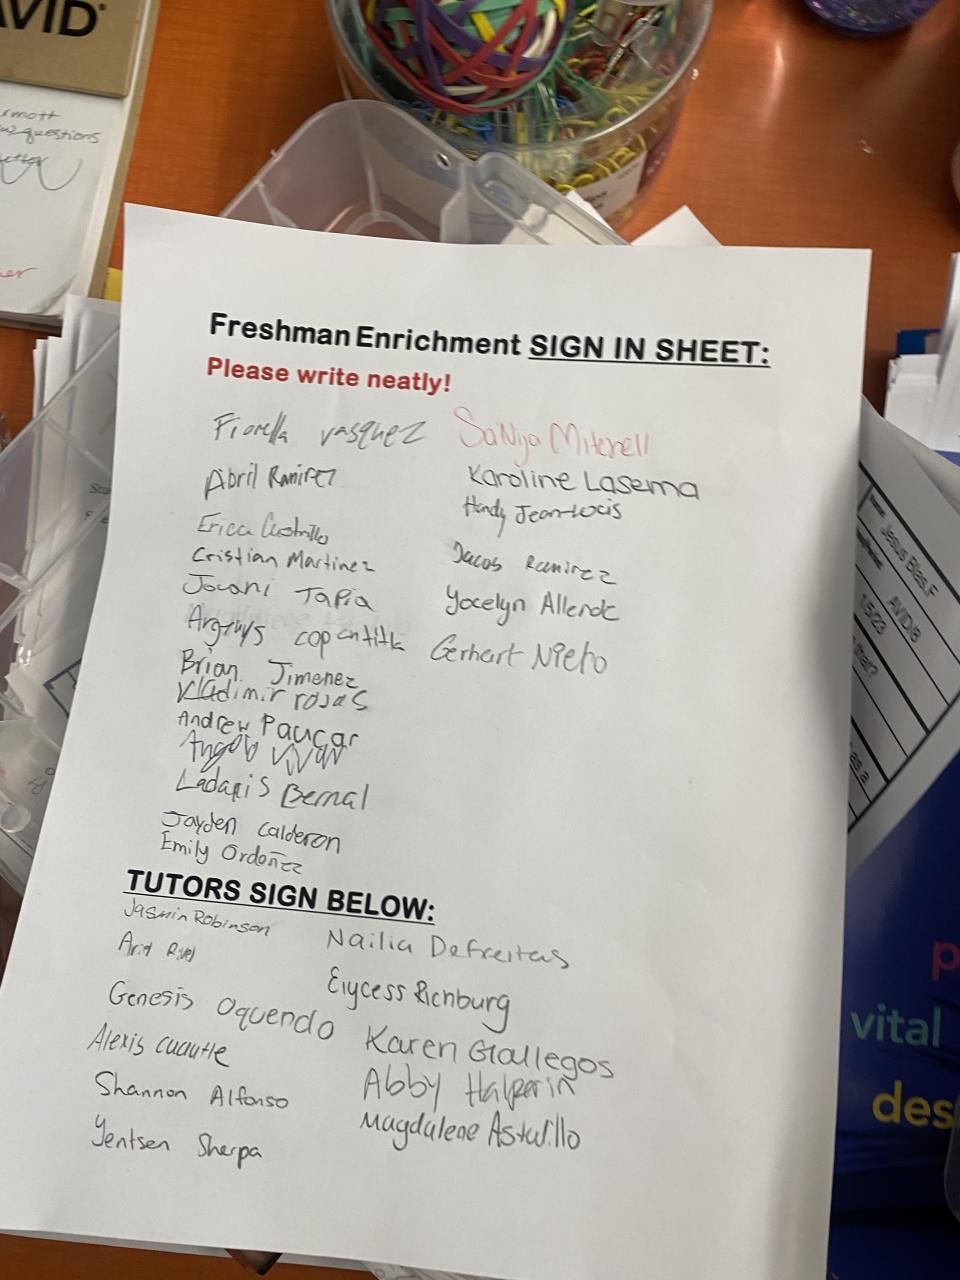 AVID
questions
Freshman Enrichment SIGN IN SHEET:
Please write neatly!
Fiorella vasquez
Abril Ramirez
Erica Castrillo
Cristian Martinez
Jovani Tapia
Brian Jimenez
Vladimir rojas
Andrew Paucar
Ladaris Bernal
Jayden Calderon
Emily Ordoñez
SaNiya Mitchell
Karoline Laserna
Handy Jean-Louis
Ramirez
Yocelyn Allende
Gerhart Nieto
TUTORS SIGN BELOW:
Jasmin Robinson
Genesis Oquendo
Alexis Cuautle
Shannon Alfonso
Yentsen Sherpa
Nailia DeFreitas
Elycess Richburg
Karen Gallegos
Abby Halperin
Magdalene Astudillo
Jesus Blas.F
AVID/8
1/5/23
vital
des